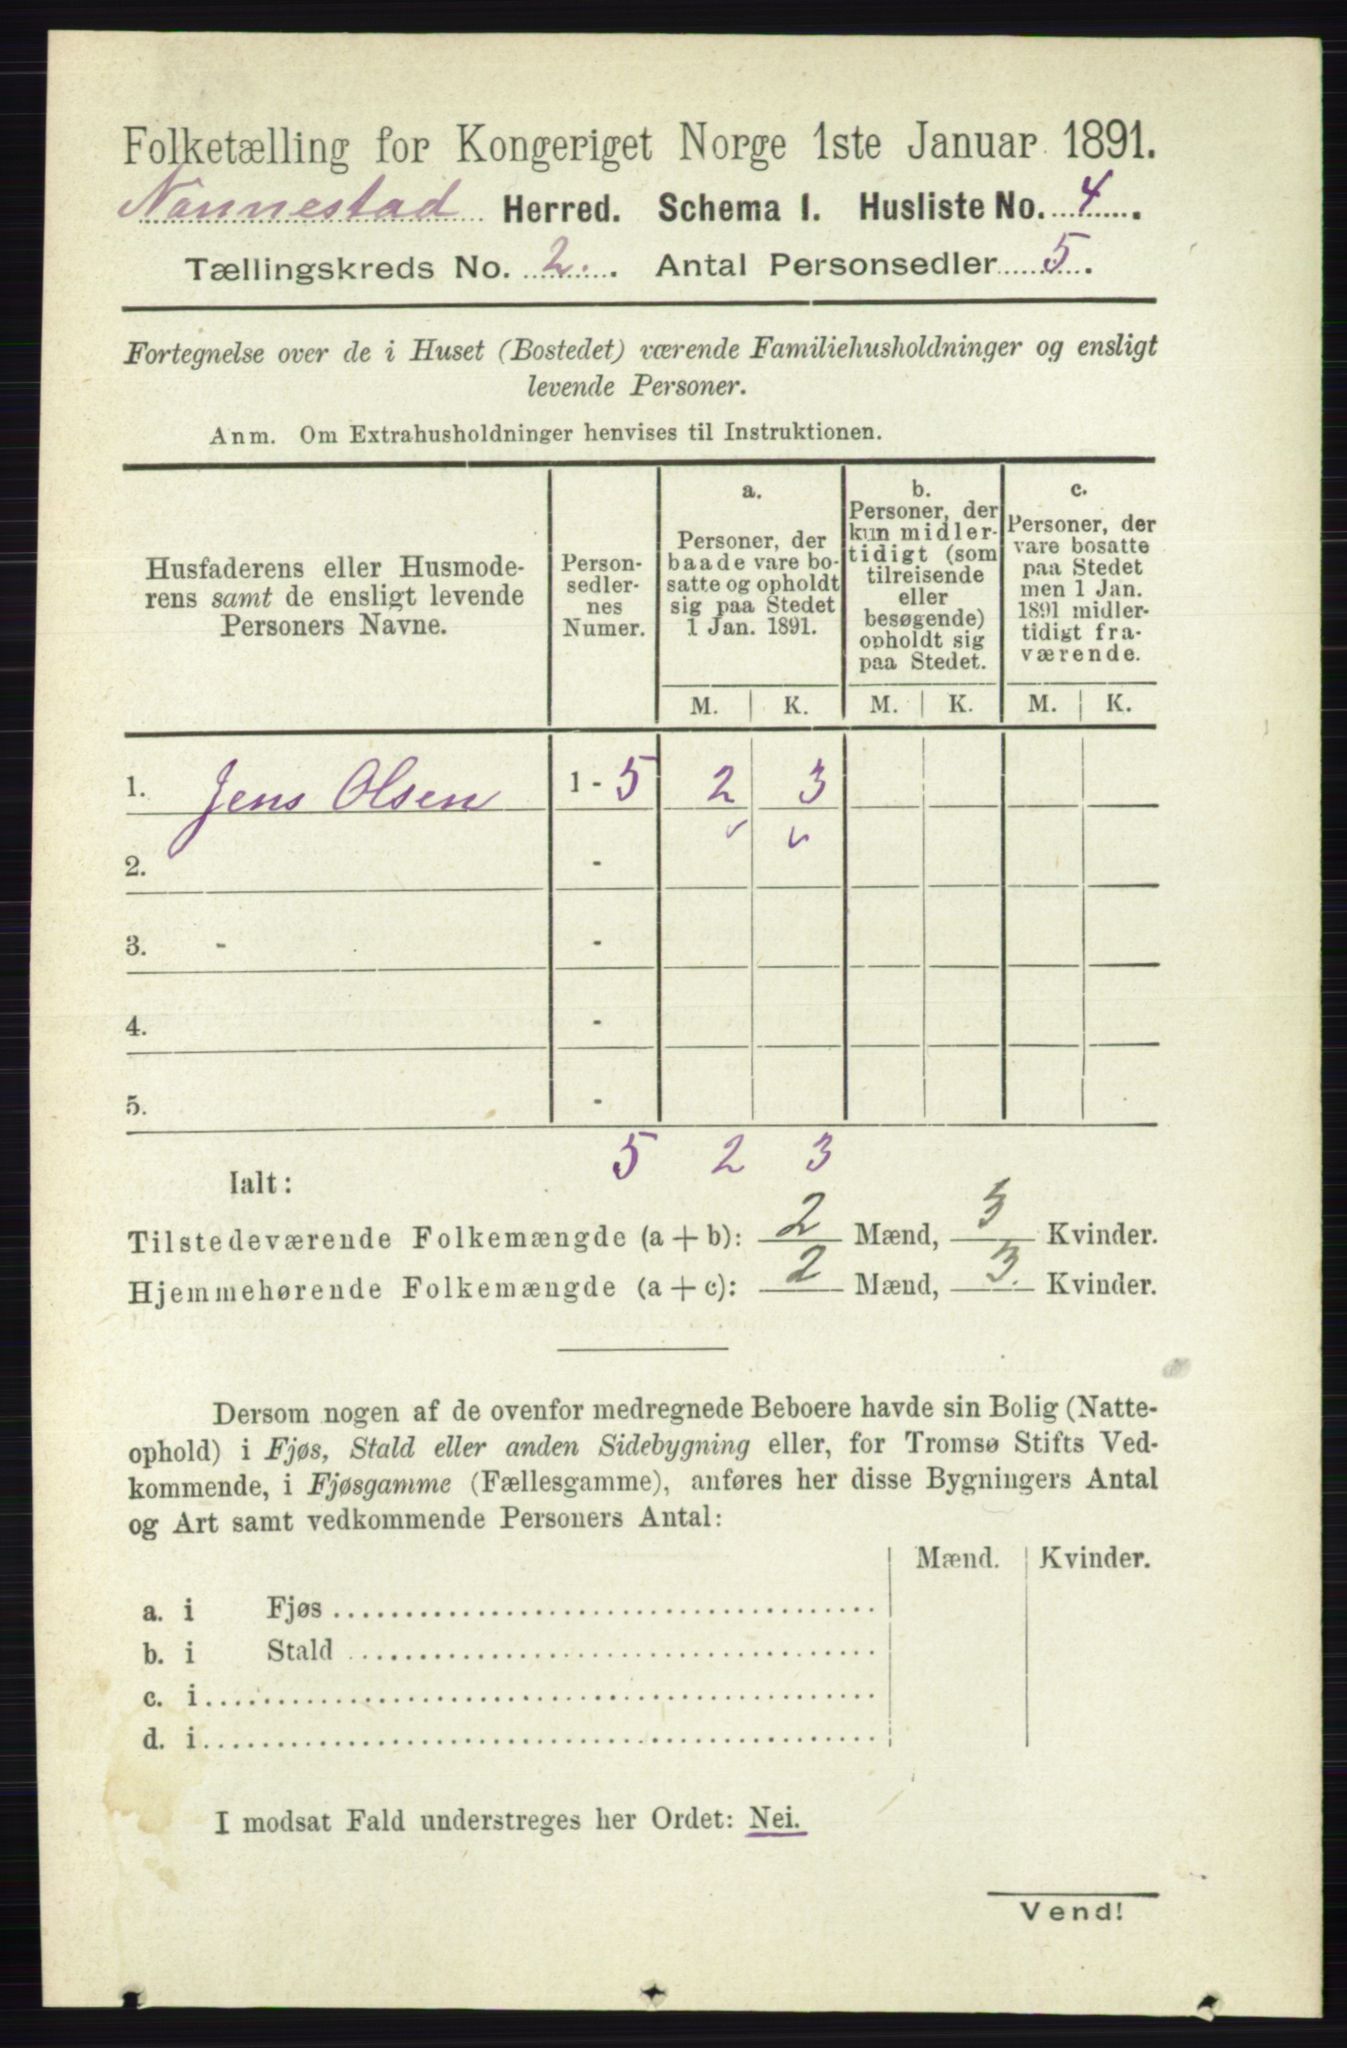 Folketælling for Kongeriget Norge 1ste Januar 1891.
Nannestad Herred. Schema I. Husliste No. 4.
Tællingskreds No. 2. Antal Personsedler 5.
Fortegnelse over de i Huset (Bostedet) værende Familiehusholdninger og ensligt
levende Personer.
Anm. Om Extrahusholdninger henvises til Instruktionen.
Husfaderens eller Husmode-
rens samt de ensligt levende
Personers Navne.
Person-
sedler-
nes
Numer.
a.
Personer, der
baade vare bo-
satte og opholdt
sig paa Stedet
1 Jan. 1891.
b.
Personer, der
kun midler-
tidigt (som
tilreisende
eller
besøgende)
opholdt sig
paa Stedet.
c.
Personer, der
vare bosatte
paa Stedet
men 1 Jan.
1891 midler-
tidigt fra-
værende.
M. K. M. K. M. K.
1. Jens Olsen 1 - 5 2 3
2. -
3. - -
4. -
5. -
5 2 3
Ialt:
Tilstedeværende Folkemængde (a + b): 2 Mænd, 3 Kvinder.
Hjemmehørende Folkemængde (a + c): 2 Mænd, 3. Kvinder.
Dersom nogen af de ovenfor medregnede Beboere havde sin Bolig (Natte-
ophold) i Fjøs, Stald eller anden Sidebygning eller, for Tromsø Stifts Ved-
kommende, i Fjøsgamme (Fællesgamme), anføres her disse Bygningers Antal
og Art samt vedkommende Personers Antal:
Mænd. Kvinder.
a. i Fjøs
b. i Stald
c. i
d. i
I modsat Fald understreges her Ordet: Nei.
Vend!